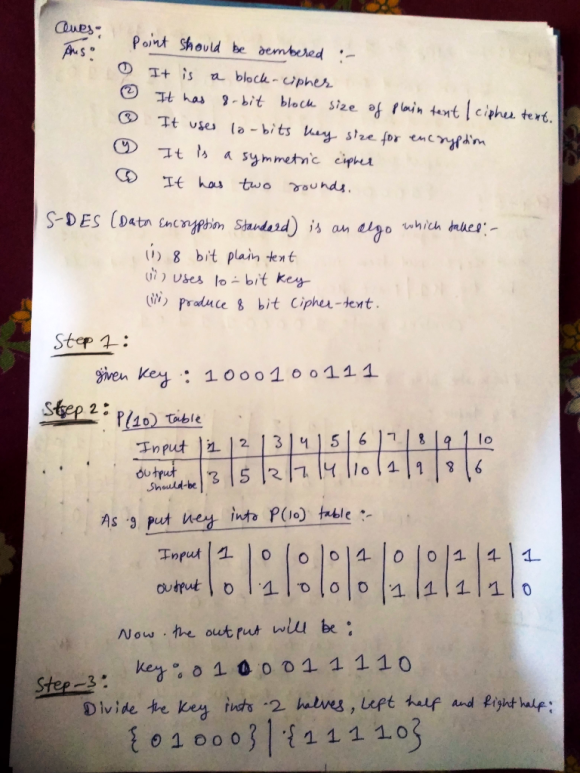 Ques:
Ans: Point should be rembered :-
① It is a block-cipher
② It has 8-bit block size of plain text | cipher text.
③ It uses 10-bits key size for encryption
④ It is a symmetric cipher
⑤ It has two rounds.
S-DES (Data Encryption Standard) is an algo which takes:-
(i) 8 bit plain text
(ii) uses 10-bit key
(iii) produce 8 bit cipher-text.
Step 1:
given key : 1000100111
Step 2: P(10) Table
Input | 1 | 2 | 3 | 4 | 5 | 6 | 7 | 8 | 9 | 10
output should be | 3 | 5 | 2 | 7 | 4 | 10 | 1 | 9 | 8 | 6
As put key into P(10) table :-
Input | 1 | 0 | 0 | 0 | 1 | 0 | 0 | 1 | 1 | 1
output | 0 | 1 | 0 | 0 | 0 | 1 | 1 | 1 | 1 | 0
Now the output will be :
key : 0100011110
Step-3:
Divide the key into 2 halves, left half and Right half:
{01000} | {11110}